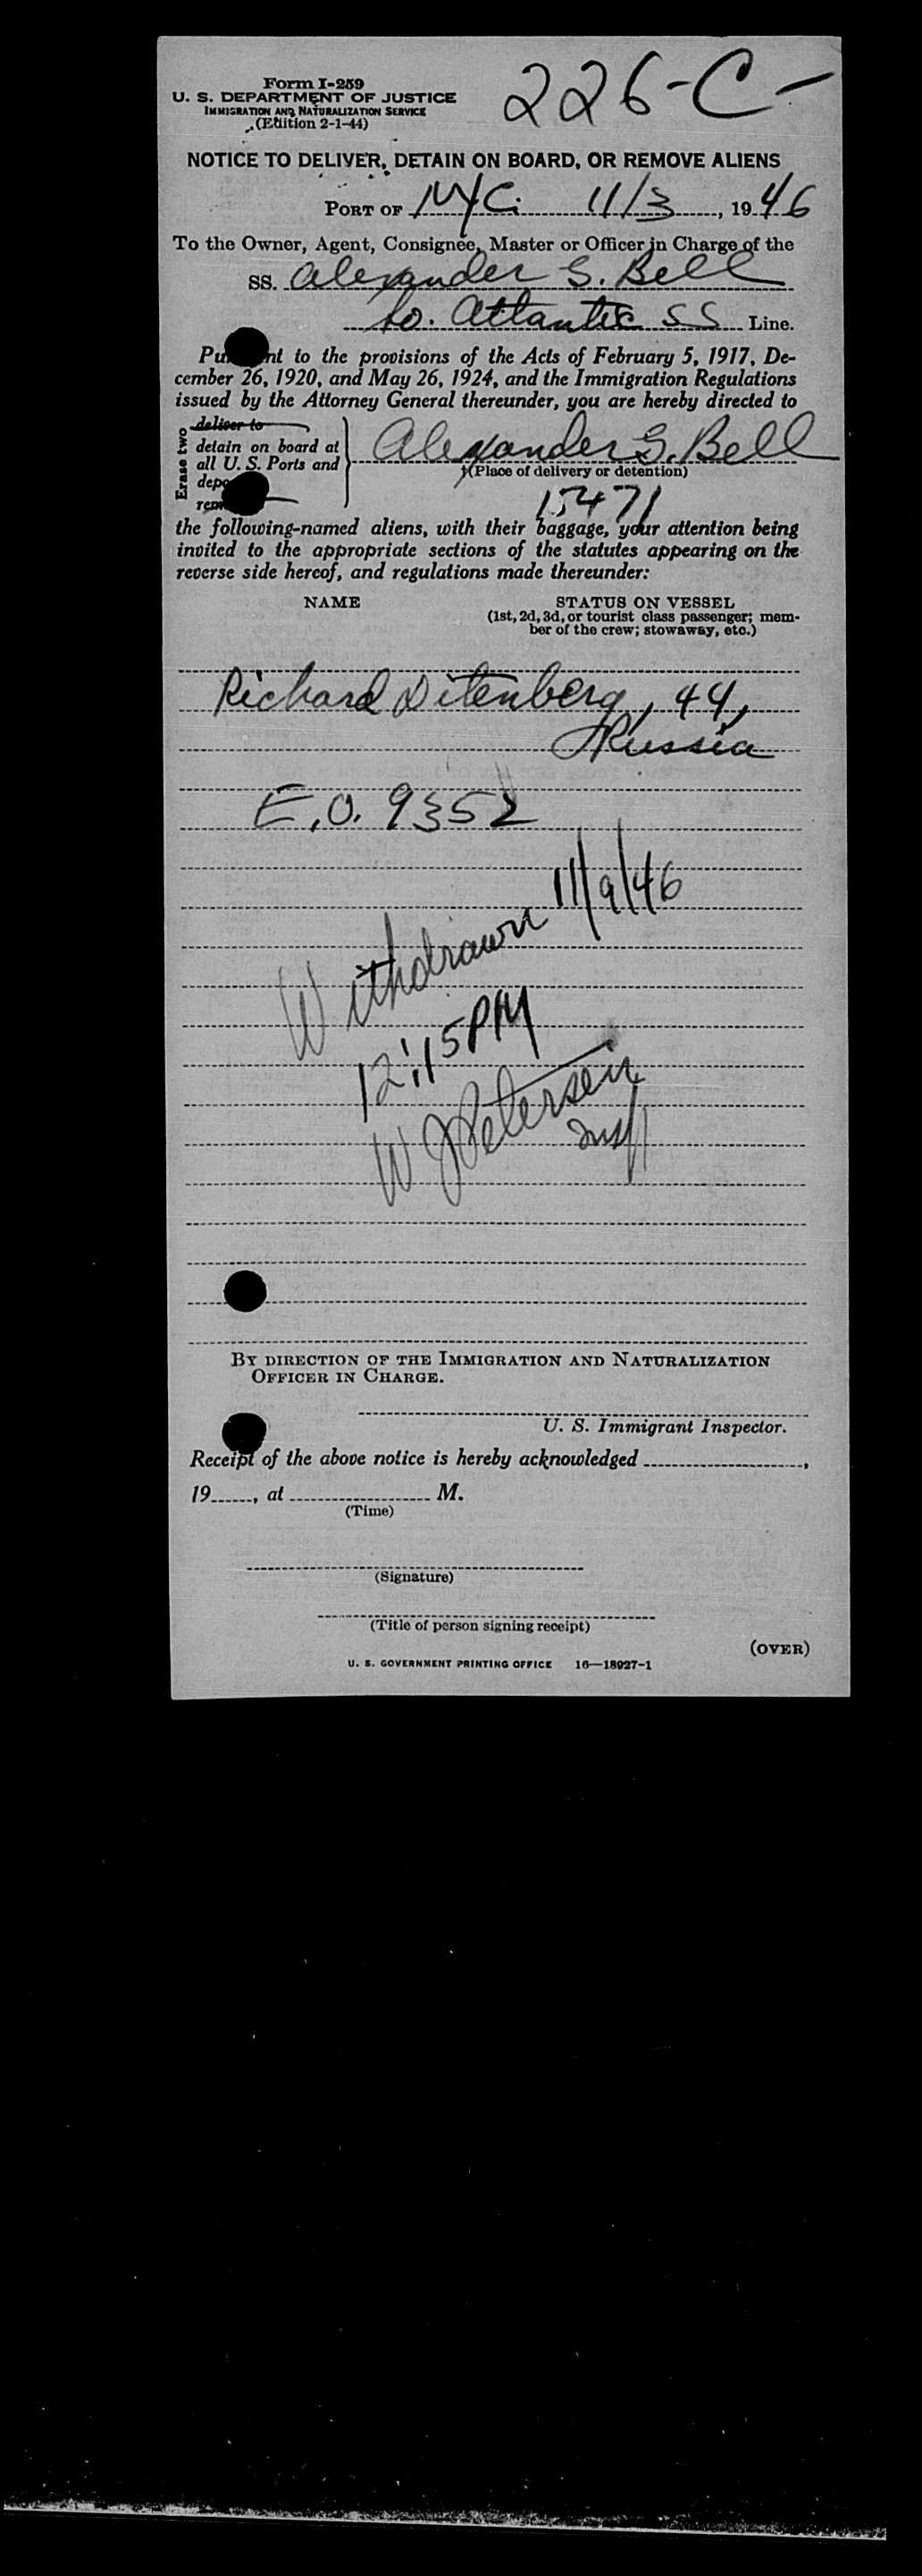 226-C-
Form I-259
U. S. DEPARTMENT OF JUSTICE
IMMIGRATION AND NATURALIZATION SERVICE
(Edition 2-1-44)
NOTICE TO DELIVER, DETAIN ON BOARD, OR REMOVE ALIENS
PORT OF NYC. 11/3, 1946
To the Owner, Agent, Consignee, Master or Officer in Charge of the
SS. Alexander G. Bell
So. Atlantic SS Line.
Pu nt to the provisions of the Acts of February 5, 1917, De-
cember 26, 1920, and May 26, 1924, and the Immigration Regulations
issued by the Attorney General thereunder, you are hereby directed to
Erase two
deliver to
detain on board at
all U. S. Ports and
depo
rem
Alexander G. Bell
(Place of delivery or detention)
15471
the following-named aliens, with their baggage, your attention being
invited to the appropriate sections of the statutes appearing on the
reverse side hereof, and regulations made thereunder:
NAME STATUS ON VESSEL
(1st, 2d, 3d, or tourist class passenger; mem-
ber of the crew; stowaway, etc.)
Richard Ditenberg, 44,
Russia
E.O. 9352
Withdrawn 11/9/46
12:15PM
W J Petersen
Insp
BY DIRECTION OF THE IMMIGRATION AND NATURALIZATION
OFFICER IN CHARGE.
U. S. Immigrant Inspector.
Receipt of the above notice is hereby acknowledged ,
19 , at M.
(Time)
(Signature)
(Title of person signing receipt)
(OVER)
U. S. GOVERNMENT PRINTING OFFICE 16—18927-1